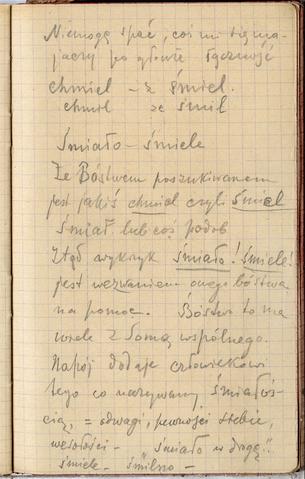 Niemogę spać, coś mi się ma-
jaczy po głowie łączność
chmiel – z śmiel.
chmil ze śmił
Śmiało – śmiele
Że Bóstwem poszukiwanem
jest jakiś chmiel czyli śmiel
śmiał lub coś podob
Stąd wykryk śmiało! śmiele!
jest wezwaniem onego bóstwa
na pomoc. Bóstwo to ma
wiele z Somą wspólnego.
Napój dodaje człowiekowi
tego co nazywamy śmiałoś-
cią, = odwagi, pewności siebie,
wesołości – śmiało w drogę"
śmiele – śmilno –